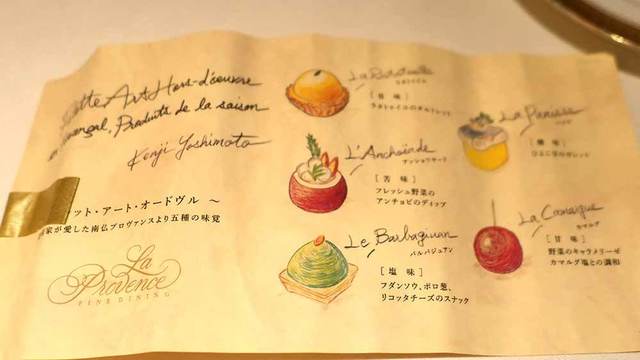 Art Hors-d'œuvre
Produits de la saison
Kenji Yoshimoto
ット・アート・オードヴル 〜
家が愛した南仏プロヴァンスより五種の味覚
La
Provence
FINE DINING
La Ratatouille
[旨味]
L'Anchoïade
アンショワヤード
[苦味]
フレッシュ野菜の
アンチョビのディップ
Le Barbagiuan
バルバジュアン
[塩味]
フダンソウ、ポロ葱、
リコッタチーズのスナック
La Panisse
パニス
[酸味]
ひよこ豆のガレット
La Camargue
カマルグ
[甘味]
野菜のキャラメリーゼ
カマルグ塩との調和